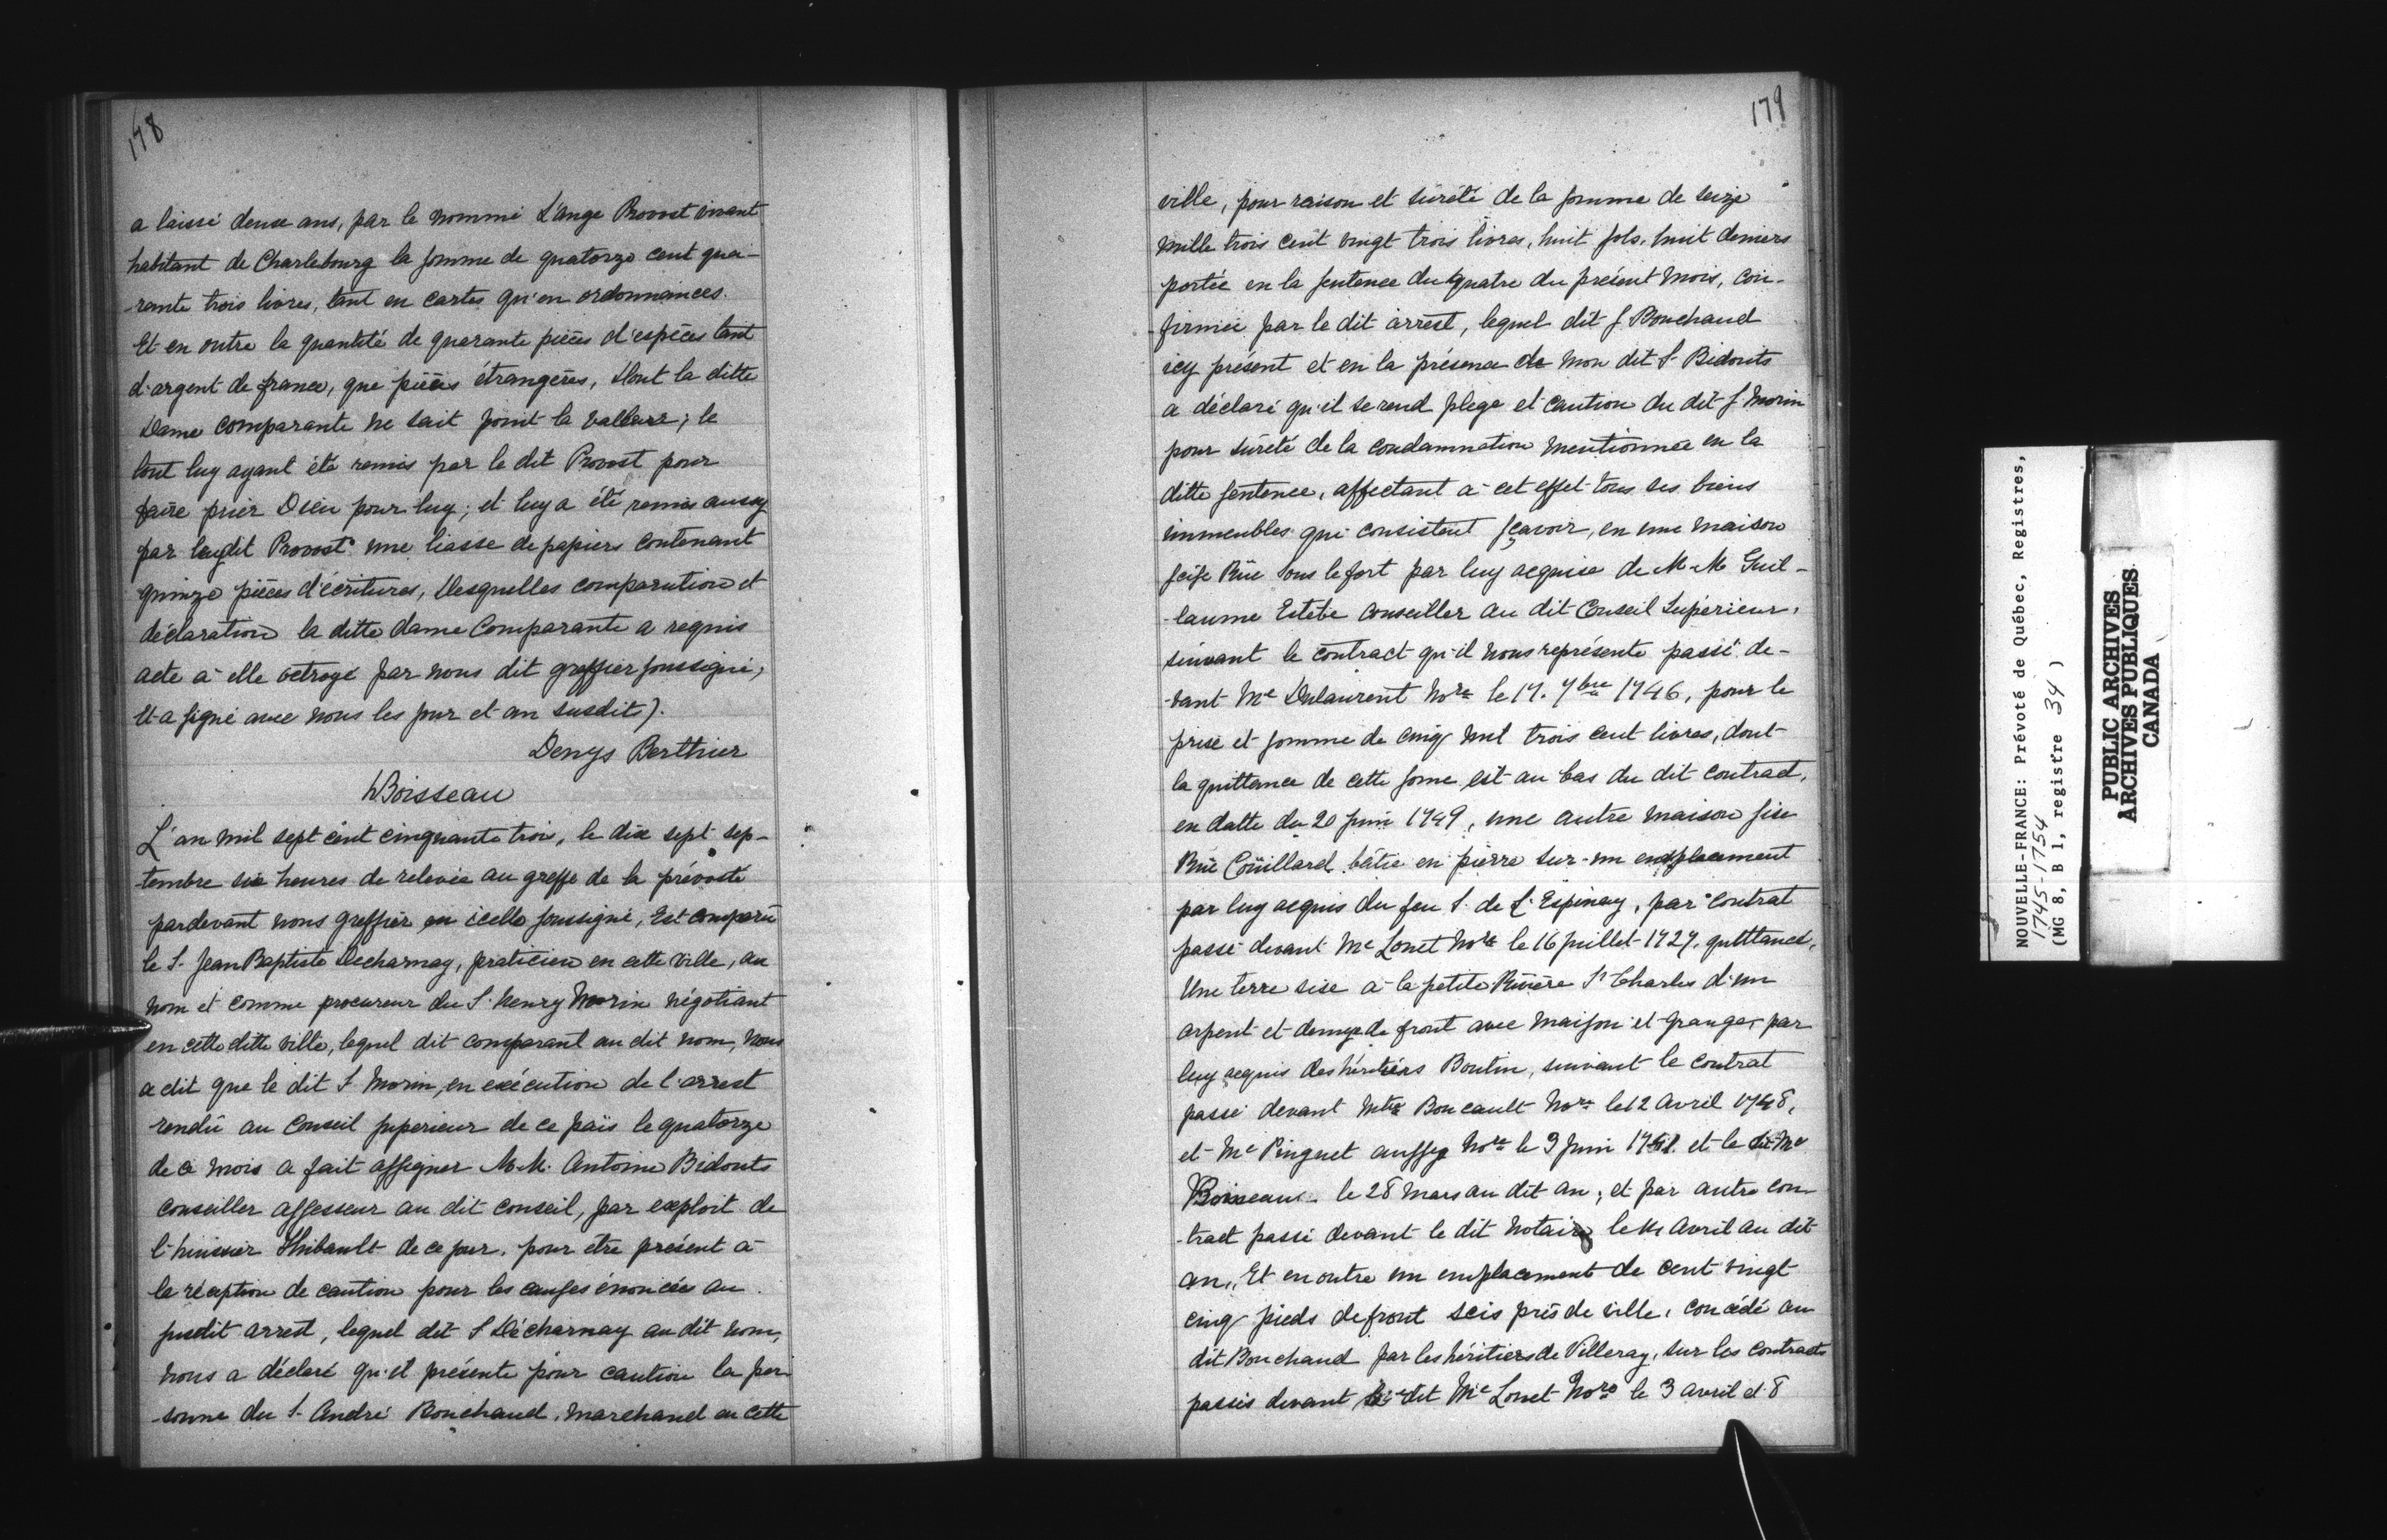 178
a laissé deux ans, par le nommé L'ange Provost vivant
habitant de Charlebourg la somme de quatorze cent qua-
-rante trois livres, tant en cartes qu'en ordonnances.
Et en outre la quantité de quarante pièces d'espèces tant
d'argent de france, que pièces étrangères, dont la ditte
Dame comparante ne sait point la valleur; le
tout luy ayant été remis par le dit Provost pour
faire prier Dieu pour luy; et luy a été remis aussy
par leydit Provost une liasse de papiers contenant
quinze pièces d'écritures, Desquelles comparution et
déclaration la ditte dame Comparante a requis
acte à elle octroyé par nous dit greffier soussigné,
Et a signé avec nous les jour et an susdits).
Denys Berthier
Boisseau
L'an mil sept cent cinquante trois, le dix sept sep-
-tembre six heures de relevée au greffe de la prévosté
pardevant nous greffier en icelle soussigné, Est comparu
le S. Jean Baptiste Decharnay, praticien en cette ville, au
nom et comme procureur du S. henry Morin négotiant
en cette ditte ville, lequel dit comparant au dit nom, Nous
a dit que le dit S. Morin, en exécution de l'arrest
rendu au Conseil superieur de ce païs le quatorze
de ce mois a fait assigner M. M. Antoine Bidouts
conseiller assesseur au dit conseil, par exploit de
l'huissier Thibault de ce jour, pour etre présent à
la réception de caution pour les causes énoncées au
susdit arrest, lequel dit S Décharnay au dit nom,
nous a déclaré qu'il présente pour caution la per
-sonne du S. André Bouchaud, Marchand en cette
179
ville, pour raison et sûreté de la somme de seize
mille trois cent vingt trois livres, huit sols, huit deniers
portée en la sentence du quatre du présent mois, con-
-firmée par le dit arrest, lequel dit S Bouchaud
icy présent et en la présence de mon dit S. Bidouts
a déclaré qu'il se rend plege et caution du dit S. Morin
pour sûreté de la condamnation mentionnée en la
ditte sentence, affectant à cet effet tous ses biens
immeubles qui consistent sçavoir, en une maison
seise Rüe Sous le fort par luy acquise de M. M Guil-
-laume Estebe Conseiller au dit Conseil Supérieur,
suivant le contract qu'il nous représente passé de-
-vant Me Dulaurent Nore le 17. 7bre 1746, pour le
prise et somme de cinq mil trois cent livres, dont
la quittance de cette some est au bas du dit contract,
en datte du 20 juin 1749, une autre maison sise
Rüe Coüillard bâtie en pierre sur un emplacement
par luy acquis du feu S. de L'Espinay, par contrat
passé devant Me Louet Nore le 16 juillet 1727, quittancé,
Une terre sise à la petite Rivière St Charles d'un
arpent et demy de front avec Maison et Grange, par
luy acquis des héritiers Boutin, suivant le contrat
passé devant Mtre Boucault Nore le 12 avril 1748,
et Me Pinguet aussy Nore le 9 juin et le dit Me
Boisseau le 28 Mars au dit an, et par autre con
-tract passé devant le dit Notaire le avril au dit
an, Et en outre un emplacement de cent vingt
cinq pieds de front seis près de ville, concédé au
dit Bouchaud par les héritiers de Villeray, sur les contracts
passés devant le dit Me Louet Nore le 3 avril et 8
NOUVELLE-FRANCE: Prévoté de Québec, Registres,
1745-1754
(MG 8, B 1, registre 34)
PUBLIC ARCHIVES
ARCHIVES PUBLIQUES
CANADA